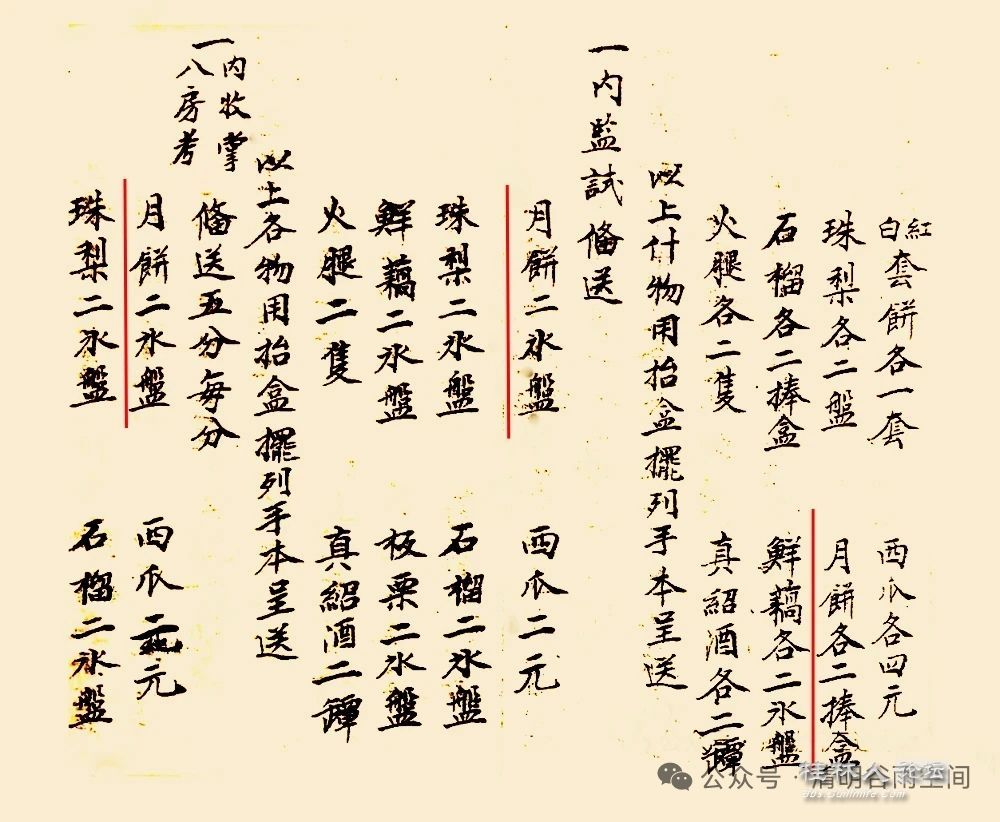 紅白套餅各一套　西瓜各四元
珠梨各二盤　月餅各二捧盒
石榴各二捧盒　鮮藕各二氷盤
火腿各二隻　真紹酒各二罈
以上什物用抬盒擺列手本呈送
一內監試備送
月餅二氷盤　西瓜二元
珠梨二氷盤　石榴二氷盤
鮮藕二氷盤　板栗二氷盤
火腿二隻　真紹酒二罈
以上各物用抬盒擺列手本呈送
一內收掌八房考備送五分每分
月餅二氷盤　西瓜二元
珠梨二氷盤　石榴二氷盤
公众号·清明谷雨空间
桂林人论坛